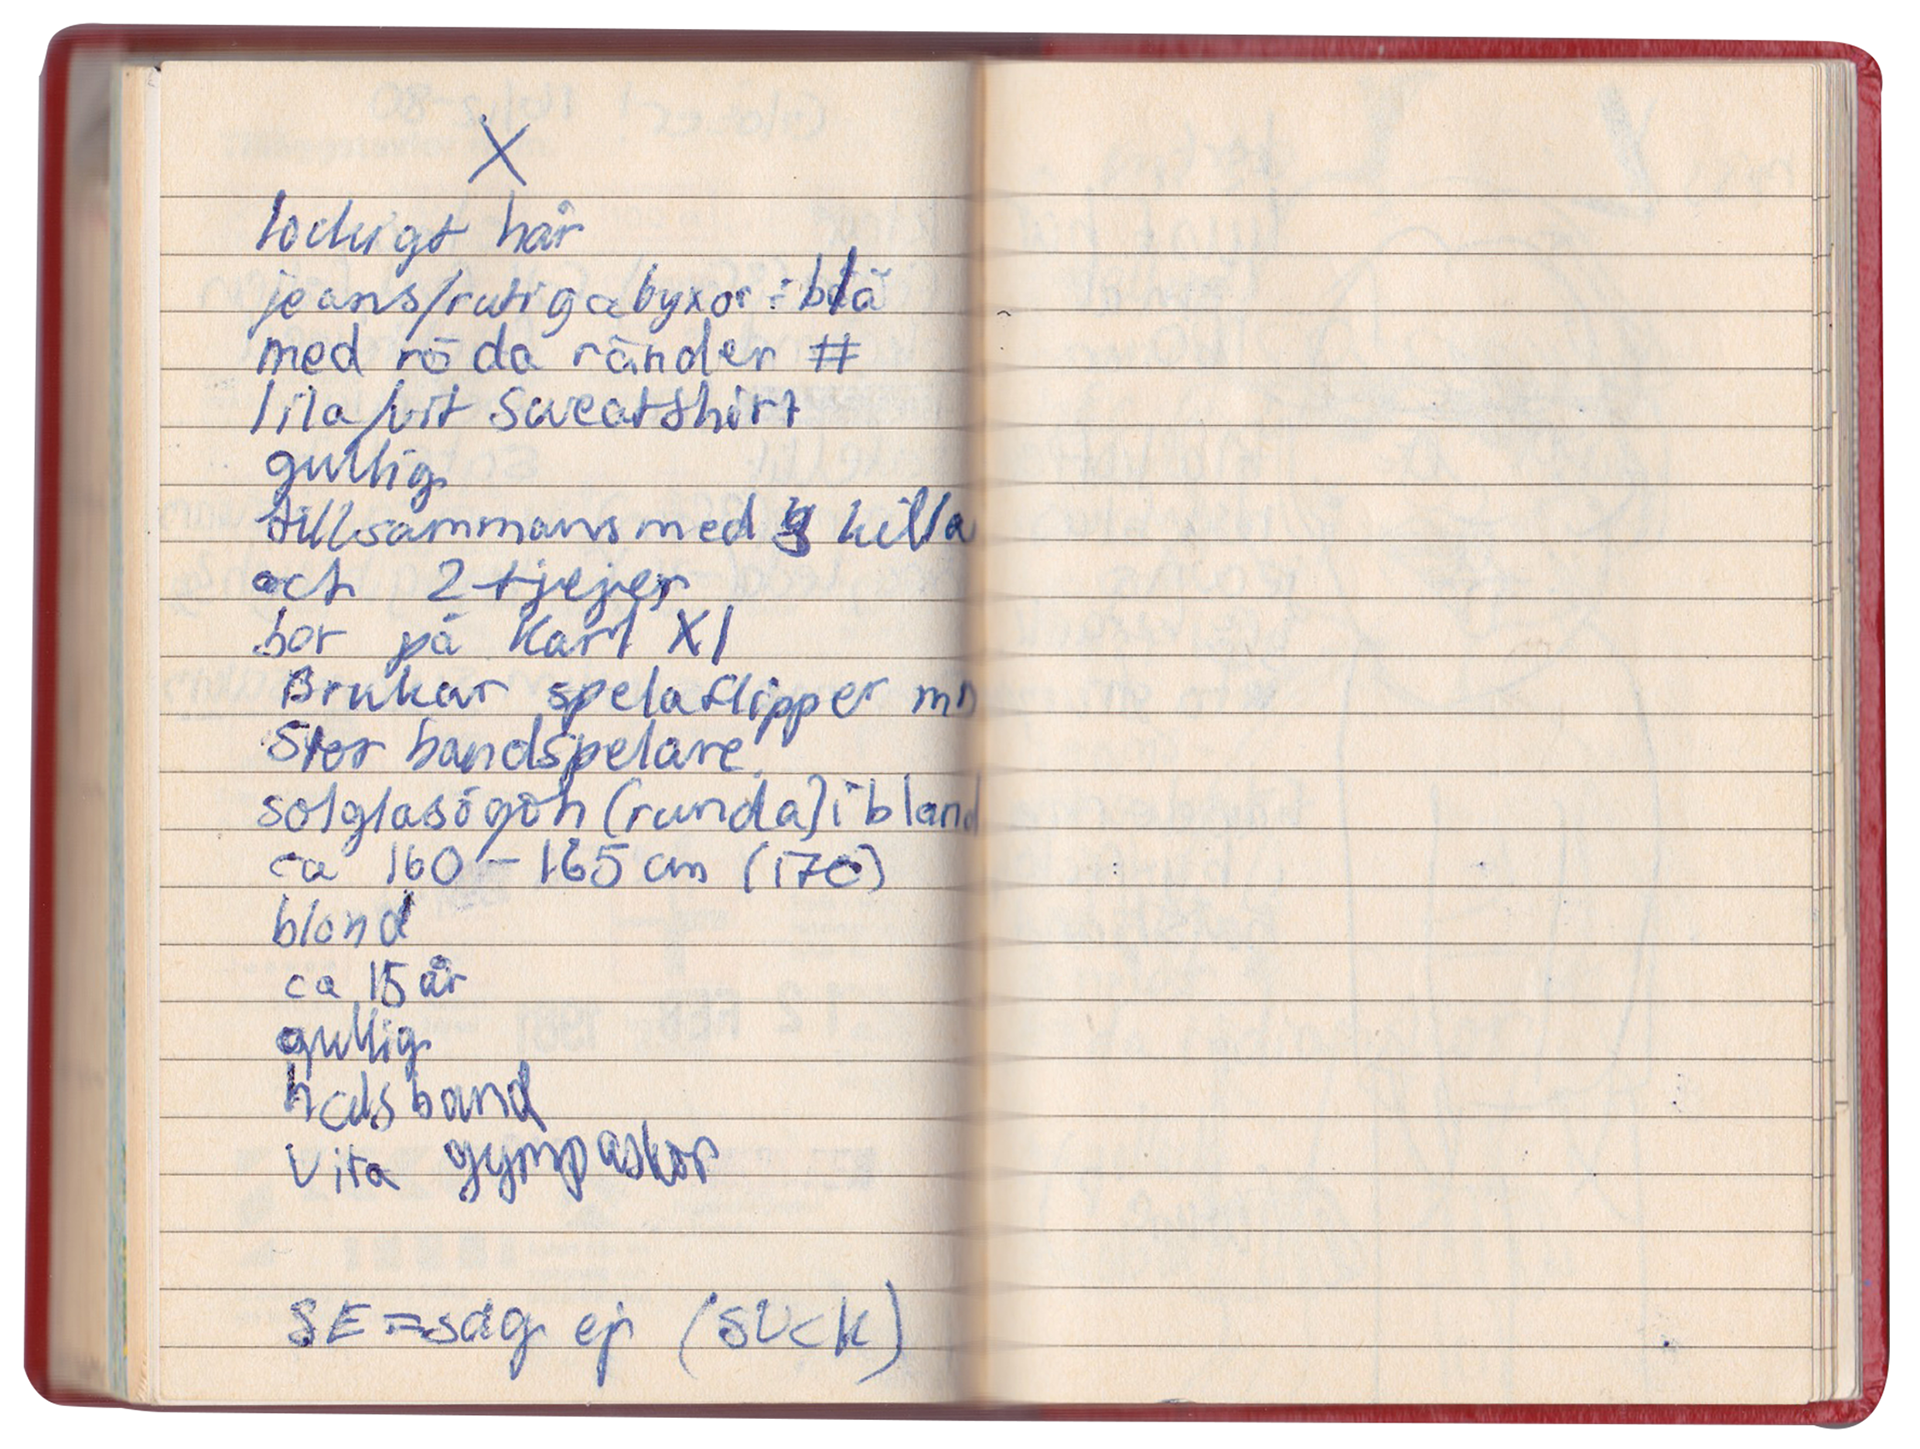 X
lockigt hår
jeans/rutiga byxor i blå
med röda ränder #
lila/vit Sweatshirt
gullig
tillsammans med killa
och 2 tjejer
bor på Karl XI
Brukar spela flipper mn
Stor bandspelare
solglasögon (runda) ibland
ca 160 - 165 cm (170)
blond
ca 15 år
gullig
halsband
vita gympaskor
SE=såg ej (SUCK)